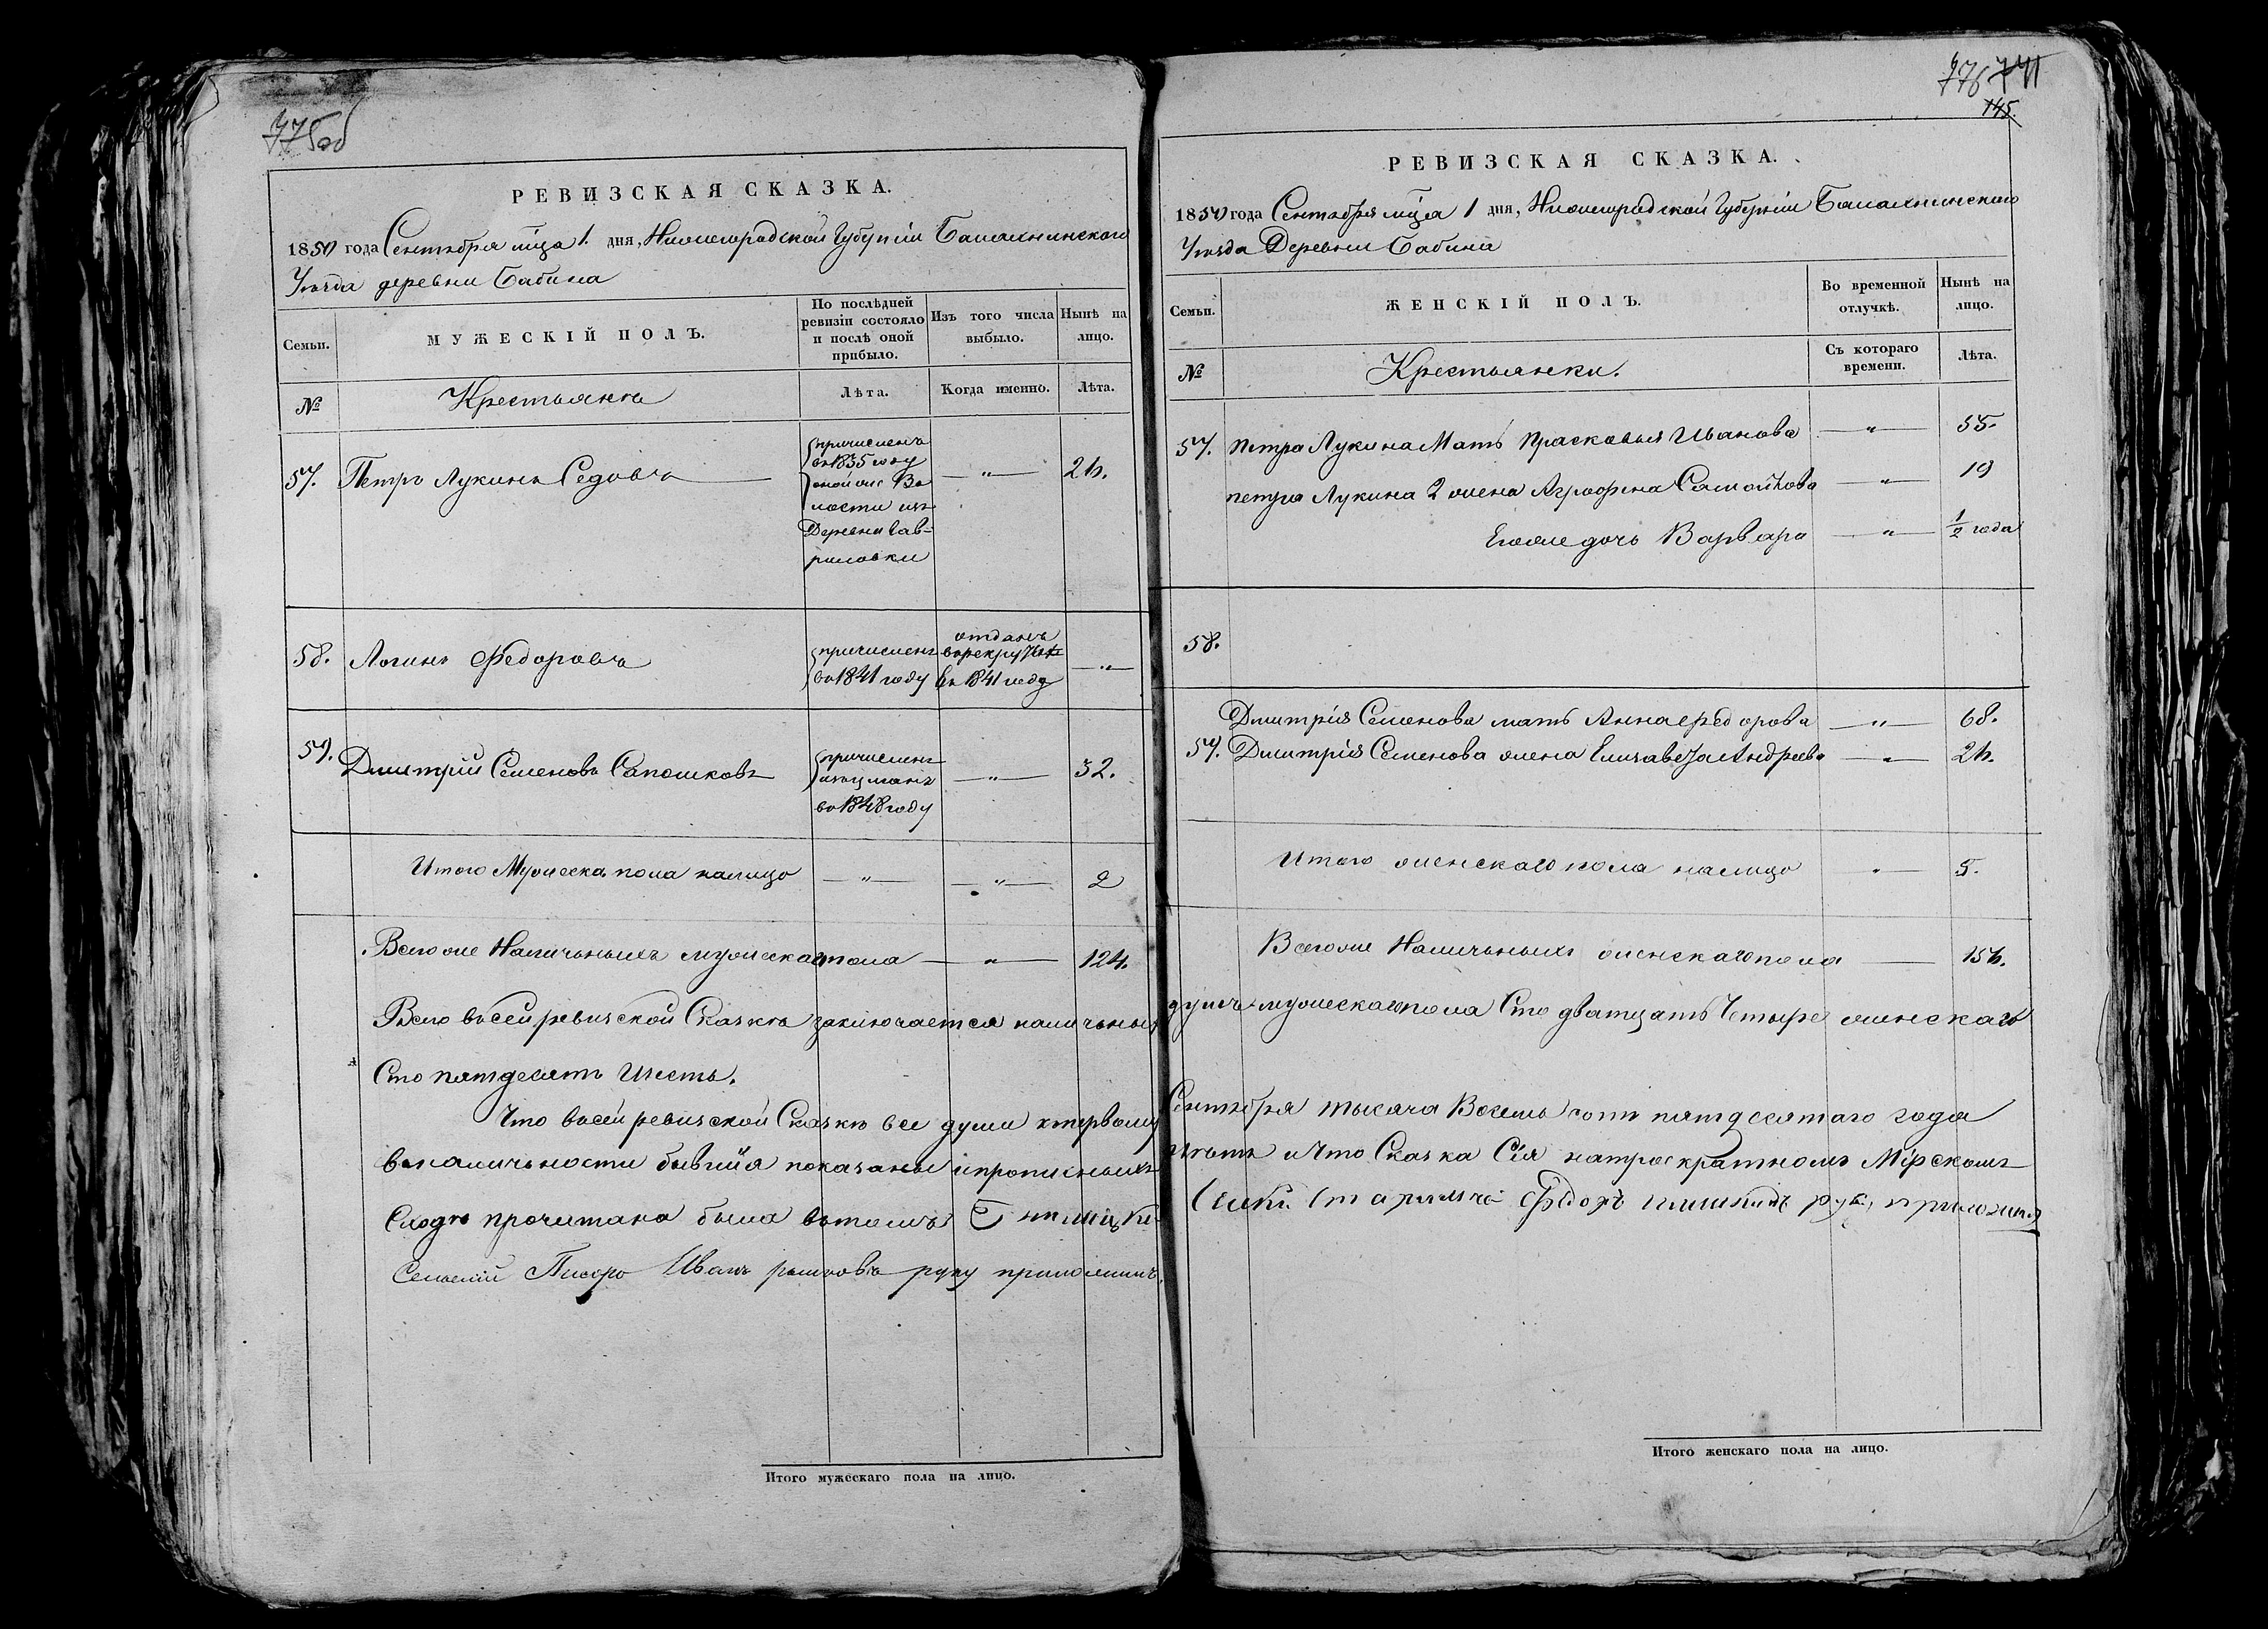 775об
РЕВИЗСКАЯ СКАЗКА.
1850 года Сентября мца 1. дня, Нижегородской Губерніи Балахнинскаго
Уѣзда деревни Бабина
Семьи.
МУЖЕСКІЙ ПОЛЪ.
По послѣдней ревизіи состояло и послѣ оной прибыло.
Изъ того числа выбыло.
Нынѣ на лицо.
№
Крестьянъ
Лѣта.
Когда именно.
Лѣта.
57. Петръ Лукинъ Седовъ — " — 26.
причисленъ
въ 1835 году
оной же Во
лости изъ
Деревни Гав-
риловки
58. Логинъ Федоровъ — " —
причисленъ
въ 1841 году
отданъ
въ рекруты
въ 1841 году
59. Дмитрій Семеновъ Сапожковъ — " — 32.
причисленъ
изъ мѣщанъ
въ 1848 году
Итого Мужеска пола налицо — " — — " — 2
Всего же Наличьныхъ мужескаго пола — " — 124.
Всего въ сей ревизской Сказкѣ заключается наличьныхъ
Сто пятдесятъ Шесть.
Что въ сей ревизской Сказкѣ все души къ первому
въ наличьности бывшія показаны и прописныхъ
Сходѣ прочитана была въ томъ
Сельскій Писарь Иванъ руку приложилъ.
Итого мужескаго пола на лицо.
776 741
145.
РЕВИЗСКАЯ СКАЗКА.
1850 года Сентября мца 1 дня, Нижегородской Губерніи Балахнинскаго
Уѣзда Деревни Бабина
Семьи.
ЖЕНСКІЙ ПОЛЪ.
Во временной отлучкѣ.
Нынѣ на лицо.
№
Крестьянки.
Съ котораго времени.
Лѣта.
57. Петра Лукина Мать Прасковья Иванова — " — 55.
петра Лукина 2 жена Агрофена Самойлова — " — 19
Егоже дочь Варвара — " — 1/2 года
58.
Дмитрія Семенова мать Анна Федорова — " — 68.
59. Дмитрія Семенова жена Елизавета Андреева — " — 26.
Итого женскаго пола налицо " — 5.
Всегоже Наличьныхъ женскаго пола — 156.
душъ мужескаго пола Сто дватцать Четыре женскаго
Сентября тысяча Восемь сотъ пятдесятаго года
нѣтъ и Что Сказка Сія на троекратномъ Мірскомъ
Федоръ руку приложилъ
Итого женскаго пола на лицо.